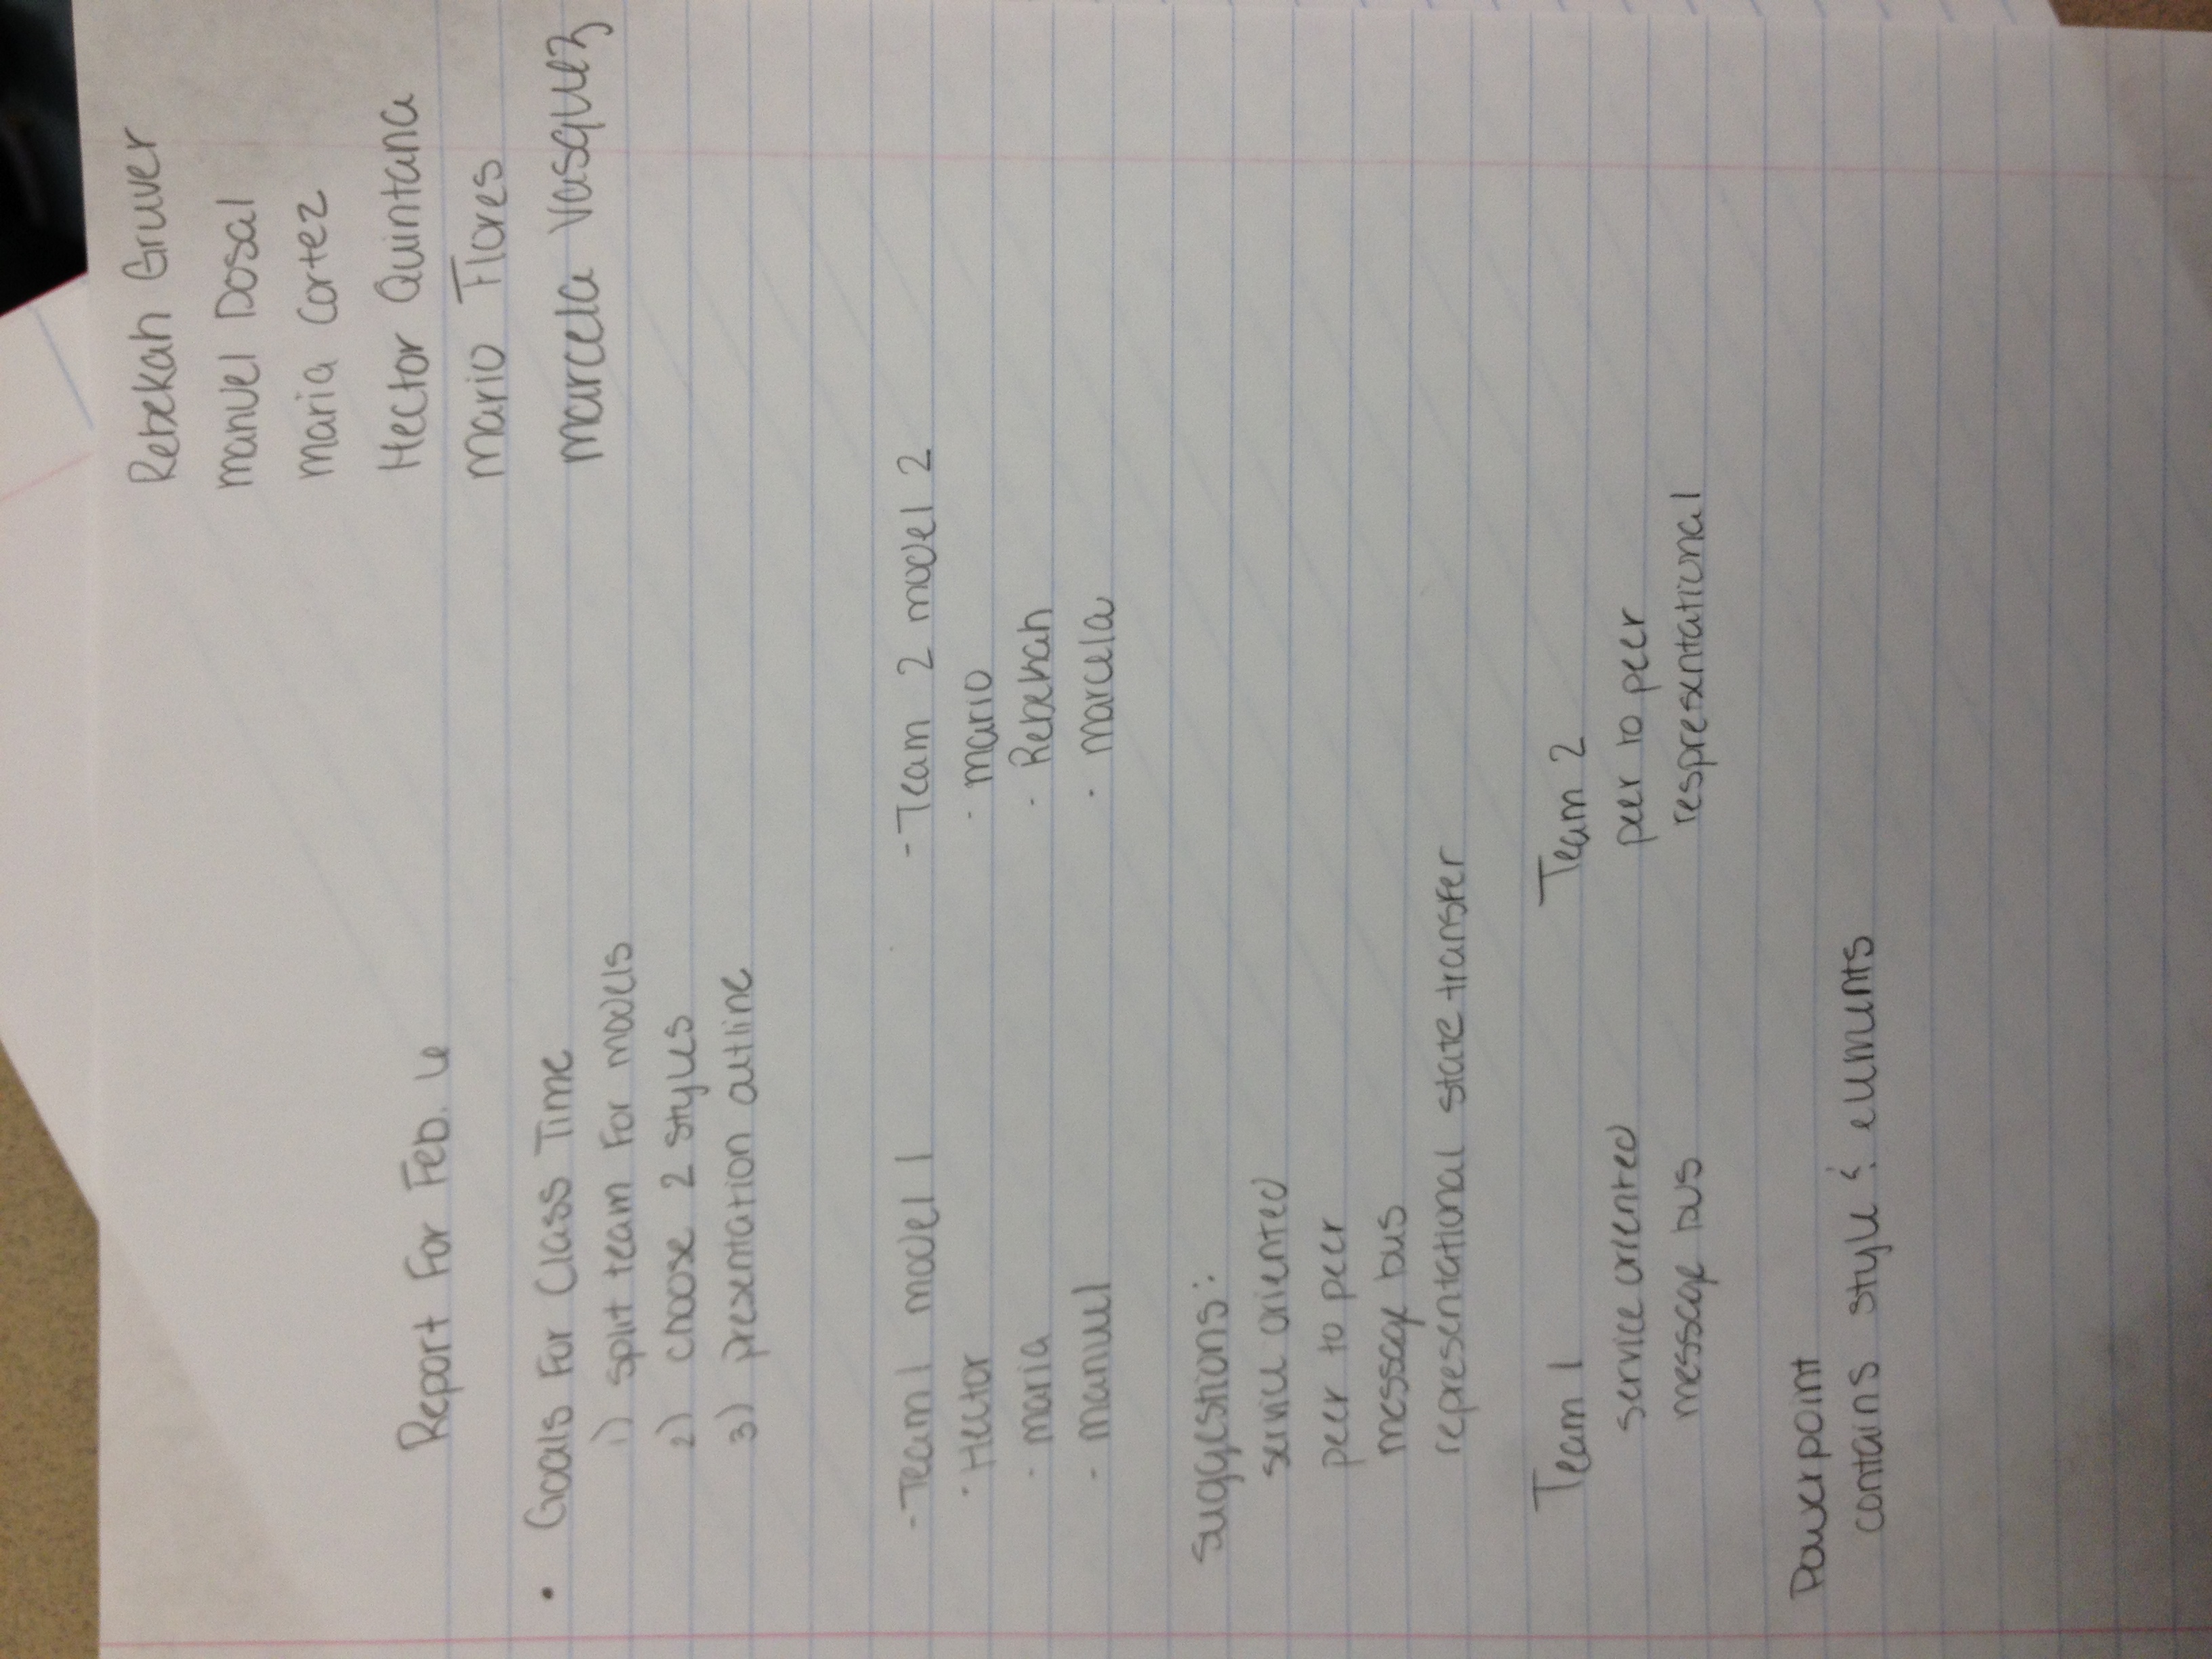 Rebekah Gruver
Manuel Dosal
Maria Cortez
Hector Quintana
Mario Flores
Marcela Vasquez
Report For Feb. 6
• Goals For Class Time
1) split team For models
2) choose 2 styles
3) presentation outline
- Team 1 model 1
- Hector
- maria
- manuel
- Team 2 model 2
- mario
- Rebekah
- marcela
suggestions:
service oriented
peer to peer
message bus
representational state transfer
Team 1
service oriented
message bus
Team 2
peer to peer
respresentational
Powerpoint
contains style & elements